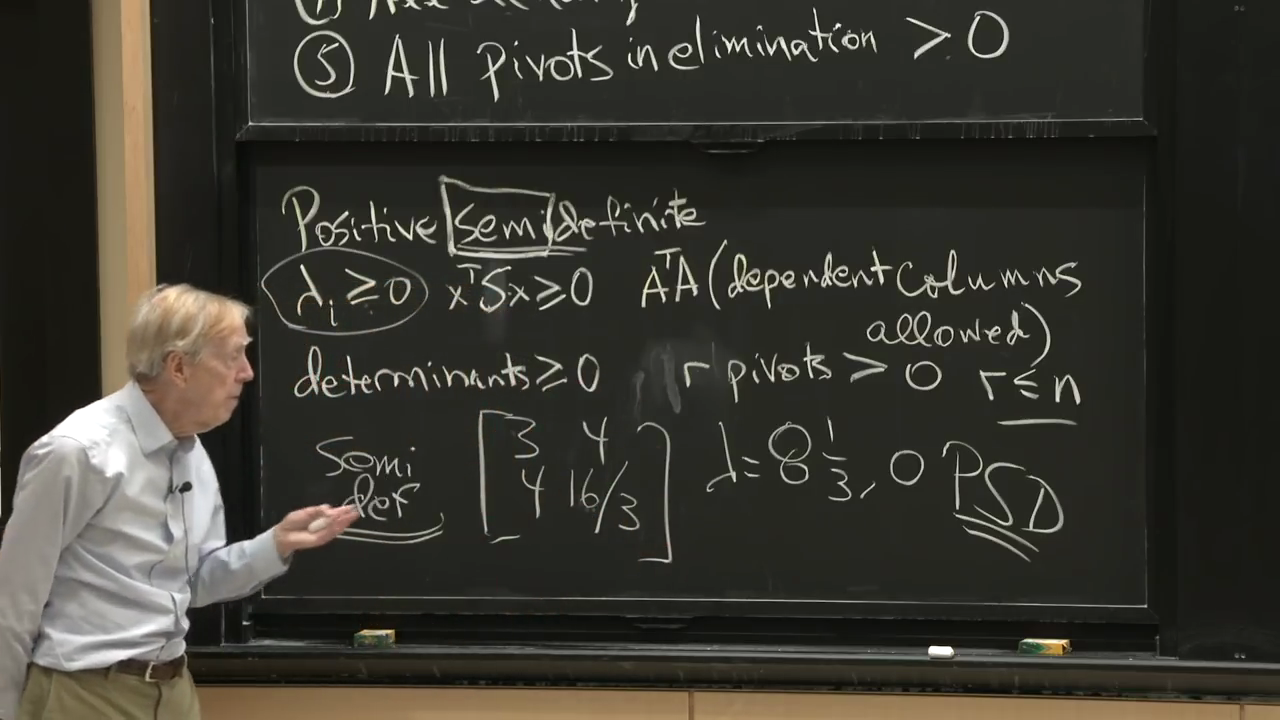 ⑤ All pivots in elimination > 0
Positive semidefinite
λᵢ ≥ 0 xᵀSx ≥ 0 AᵀA (dependent columns
allowed)
determinants ≥ 0 r pivots > 0 r ≤ n
Semi
def
[3 4
4 16/3]
λ = 8 1/3, 0 PSD